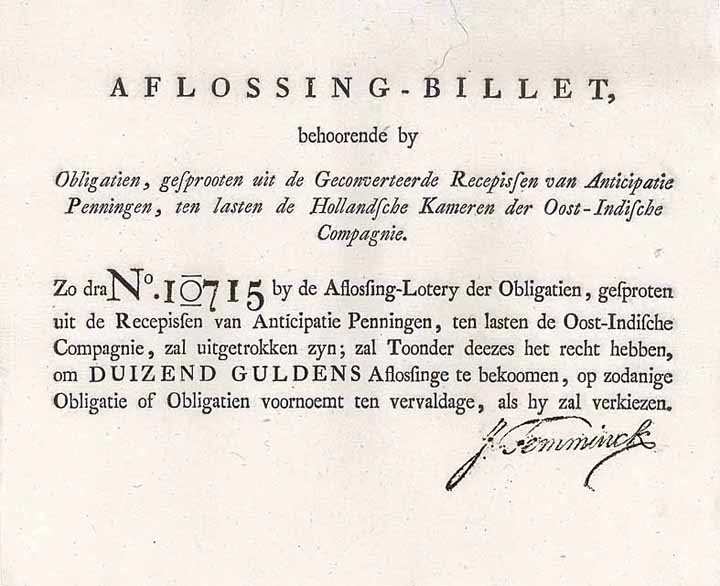 AFLOSSING-BILLET,
behoorende by
Obligatien, geſprooten uit de Geconverteerde Recepisſen van Anticipatie
Penningen, ten lasten de Hollandſche Kameren der Oost-Indiſche
Compagnie.
Zo dra No. 10715 by de Aflosſing-Lotery der Obligatien, geſproten
uit de Recepisſen van Anticipatie Penningen, ten lasten de Oost-Indiſche
Compagnie, zal uitgetrokken zyn; zal Toonder deezes het recht hebben,
om DUIZEND GULDENS Aflosſinge te bekoomen, op zodanige
Obligatie of Obligatien voornoemt ten vervaldage, als hy zal verkiezen.
J. Temminck